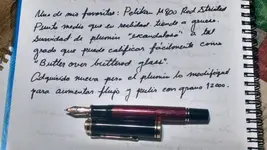 Una de mis favoritas: Pelikan M800 Red Striated
Punto medio que en realidad tiende a grueso.
Suavidad de plumín "escandalosa" a tal
grado que puede calificar fácilmente como
"Butter over buttered glass".
Adquirida nueva pero el plumín lo modifiqué
para aumentar flujo y pulir con grano 12000.